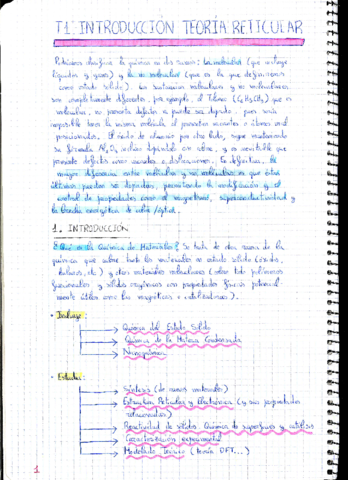 T1 INTRODUCCIÓN TEORÍA RETICULAR
Podríamos clasificar la química en dos ramas: La molecular (que incluye
líquidos y gases) y la no molecular (que es la que definiríamos
como estado sólido). Las sustancias moleculares y no moleculares
son completamente diferentes, por ejemplo, el Tolueno (C6H5CH3) que es
molecular, no presenta defectos ni puede ser dopado, pues sería
imposible tener la misma molécula al presentar vacantes o átomos mal
posicionados. El óxido de aluminio por otro lado, sigue manteniendo
su fórmula Al2O3 incluso dopándolo con cobre, y es inevitable que
presente defectos como vacantes o dislocaciones. En definitiva, la
mayor diferencia entre moleculares y no moleculares es que estos
últimos pueden ser dopados, permitiendo la modificación y el
control de propiedades como el magnetismo, superconductividad y
la banda energética de color/óptica.
1. INTRODUCCIÓN
¿Qué es la Química de Materiales? Se trata de otra rama de la
química que cubre tanto los materiales en estado sólido (óxidos,
haluros, etc.) y otros materiales moleculares (sobre todo polímeros
funcionales y sólidos orgánicos con propiedades físicas potencial-
mente útiles como las magnéticas o conductoras).
• Incluye:
Química del Estado Sólido
Química de la Materia Condensada
Nanoquímica
• Estudia:
Síntesis (de nuevos materiales)
Estructura Reticular y Electrónica (y sus propiedades
relacionadas)
Reactividad de sólidos. Química de superficies y catálisis
Caracterización experimental
Modelado Teórico (teoría DFT...)
1